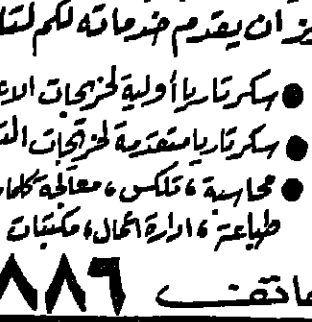 ـز أن يقدم خدماته لكم لتلـ
● سكرتاريا أولية لخريجات الاعـ
● سكرتاريا متقدمة لخريجات الثـ
● محاسبة ، تلكس ، معالجة كلمات
طباعة ، ادارة اعمال ، مكتبات
هاتف ٨٨٦